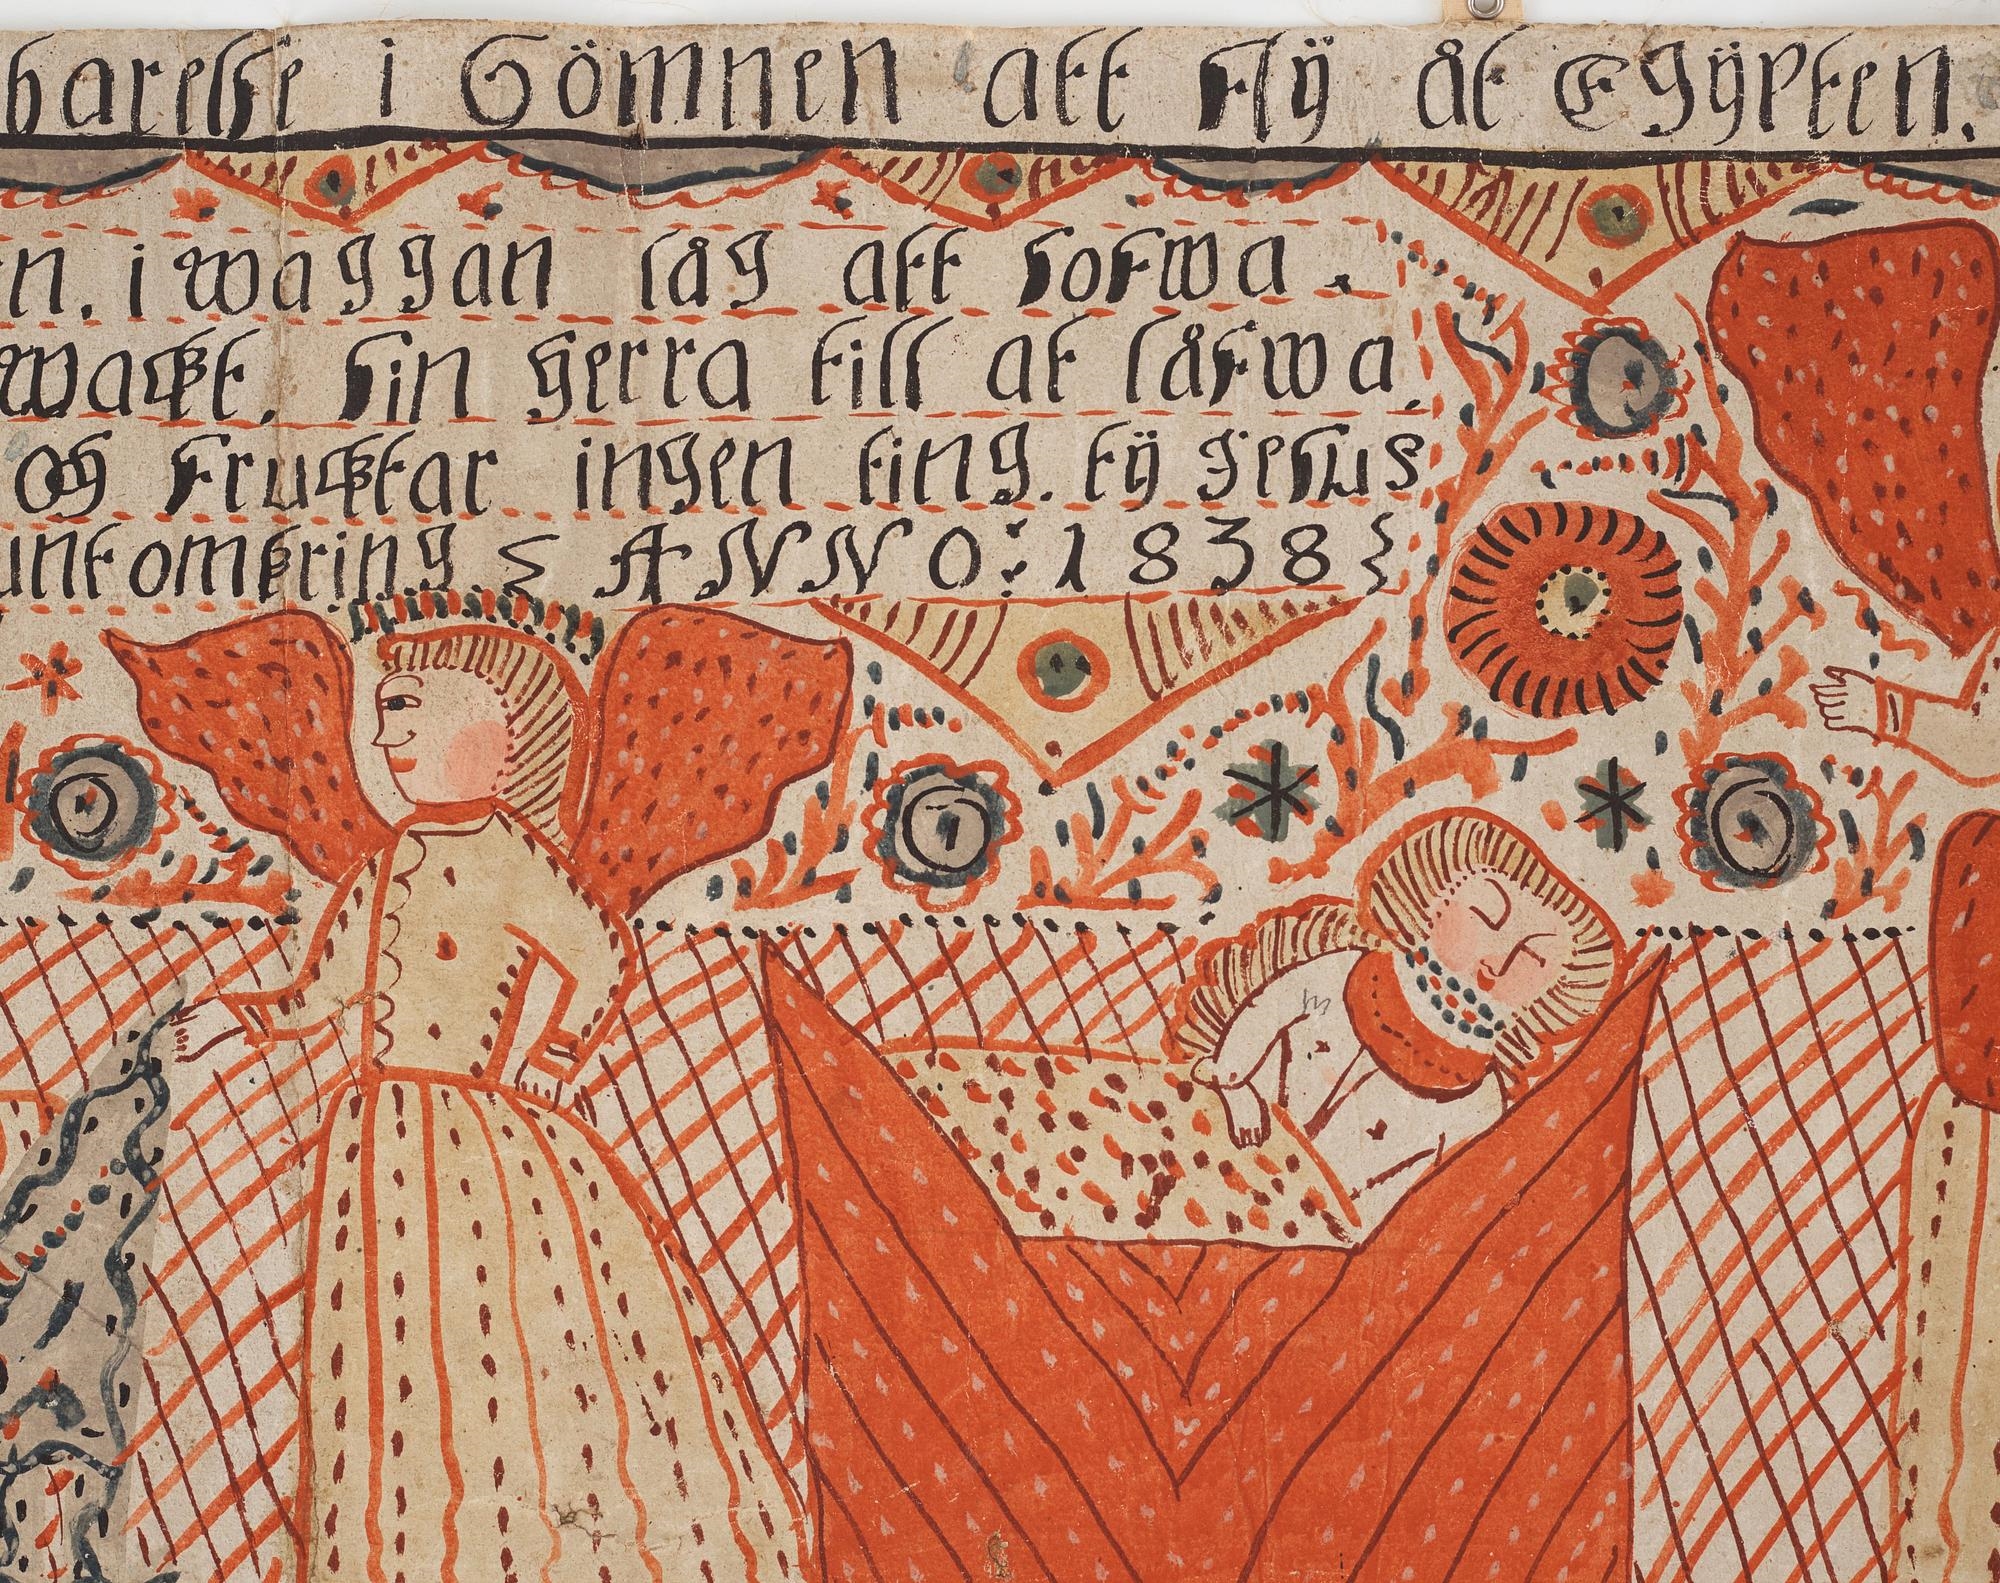 barehe i Gömnen att Flÿ åt Egÿpten.
n. i waggan låg att Sofwa.
wackt. Sin Herra till at låfwa.
Og Fruktar ingen ting. tÿ Jesus
unt omkring ANNO: 1838